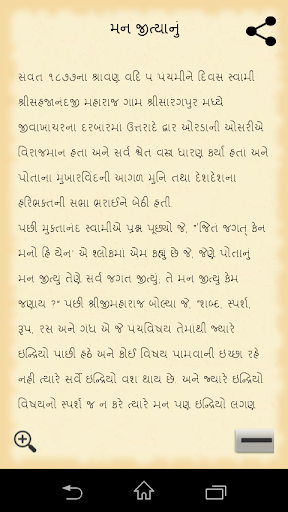 મન જીત્યાનું
સંવત ૧૮૭૭ના શ્રાવણ વદિ ૫ પંચમીને દિવસ સ્વામી
શ્રીસહજાનંદજી મહારાજ ગામ શ્રીસારંગપુર મધ્યે
જીવાખાચરના દરબારમાં ઉત્તરાદે દ્વાર ઓરડાની ઓસરીએ
વિરાજમાન હતા અને સર્વ શ્વેત વસ્ત્ર ધારણ કર્યાં હતા અને
પોતાના મુખારવિંદની આગળ મુનિ તથા દેશદેશના
હરિભક્તની સભા ભરાઈને બેઠી હતી.
પછી મુક્તાનંદ સ્વામીએ પ્રશ્ન પૂછ્યો જે, "'જિતં જગત્ કેન
મનો હિ યેન' એ શ્લોકમાં એમ કહ્યું છે જે, જેણે પોતાનું
મન જીત્યું તેણે સર્વ જગત જીત્યું; તે મન જીત્યું કેમ
જણાય ?" પછી શ્રીજીમહારાજ બોલ્યા જે, "શબ્દ, સ્પર્શ,
રૂપ, રસ અને ગંધ એ જે પંચવિષય તેમાંથી જ્યારે
ઇન્દ્રિયો પાછી હઠે અને કોઈ વિષય પામવાની ઇચ્છા રહે
નહી ત્યારે સર્વે ઇન્દ્રિયો વશ થાય છે. અને જ્યારે ઇન્દ્રિયો
વિષયનો સ્પર્શ જ ન કરે ત્યારે મન પણ ઇન્દ્રિયો લગણ